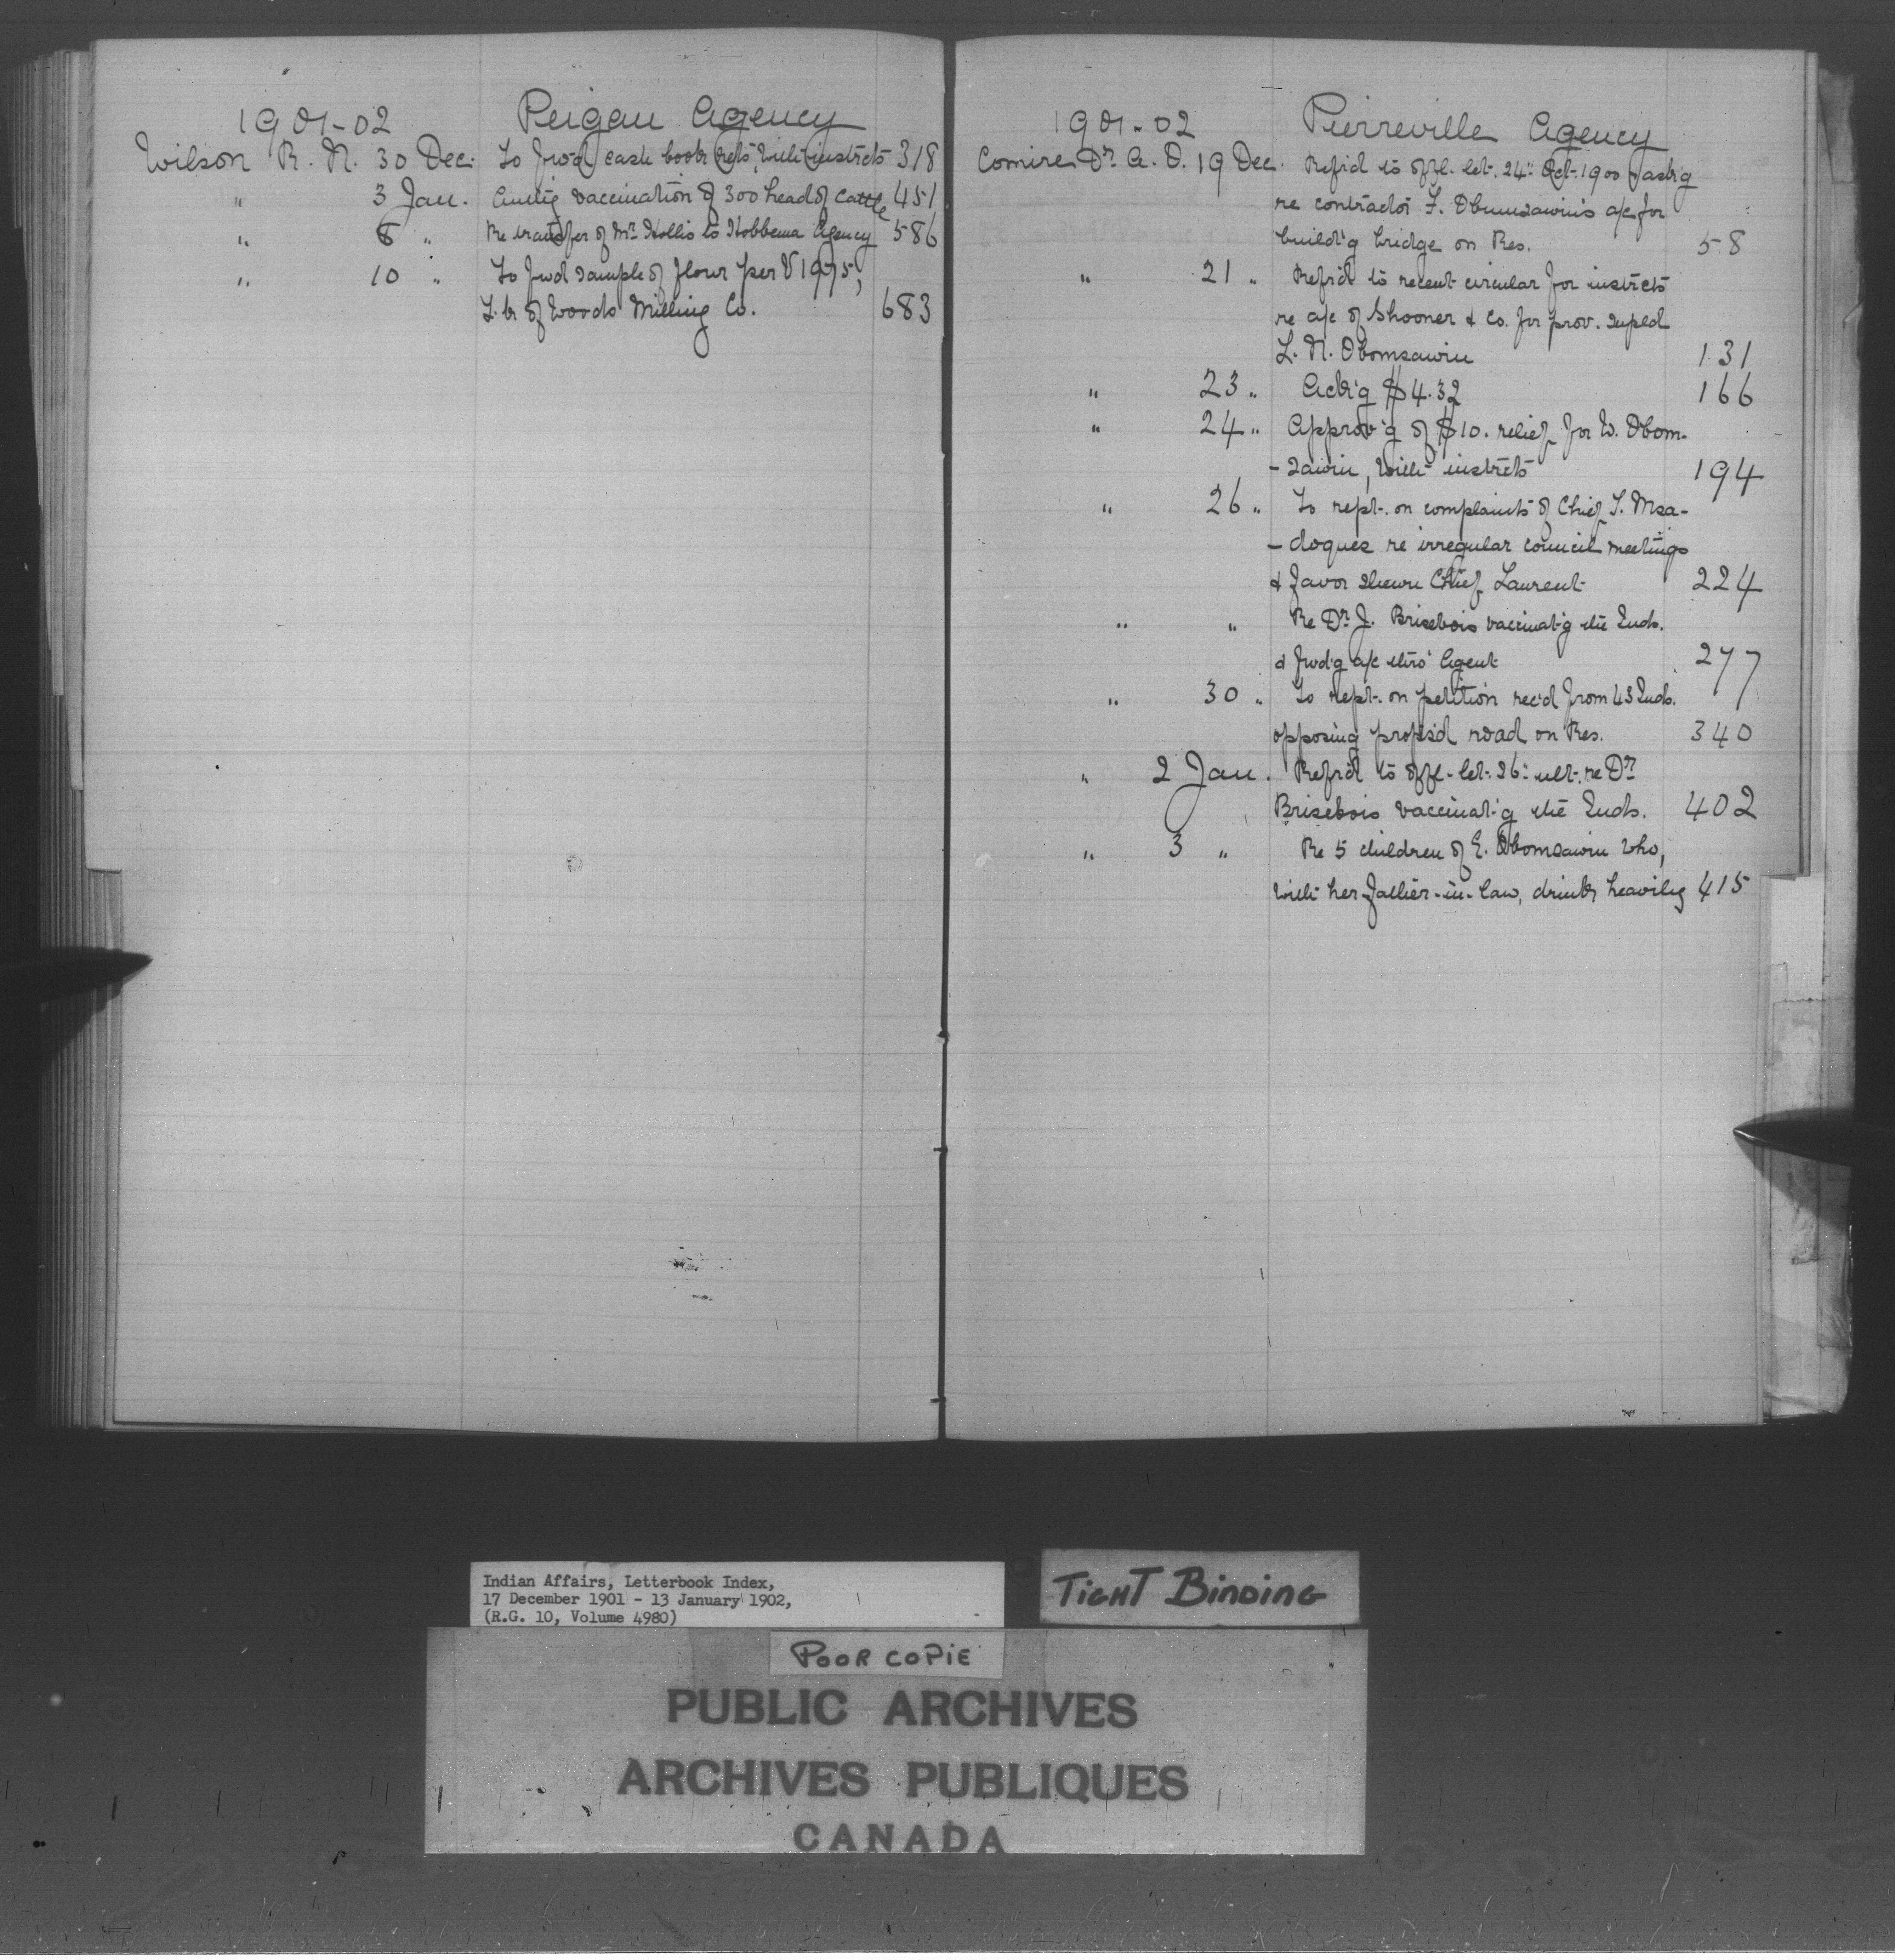 1901-02 Peigan Agency
Wilson R. N. 30 Dec. To fwd cash book rets, with instrcts 318
" 3 Jan. Autg vaccination of 300 head of cattle 451
" 8 " Re transfer of Mr Hollis to Hobbema Agency 586
" 10 " To fwd sample of flour per V1975,
L. of Woods Milling Co. 683
1901-02 Pierreville Agency
Comire Dr. A. O. 19 Dec. Refr'd to offl. let. 24th Oct. 1900 ask'g
re contractor F. Obumsawin's a/c for
build'g bridge on Res. 58
" 21 " Refr'd to recent circular for instrcts
re a/c of Shooner & Co. for prov. supld
L. N. Obomsawin 131
" 23 " Ack'g $4.32 166
" 24 " Approv'g of $10. relief for W. Obom-
-sawin, with instrcts 194
" 26 " To rept. on complaints of Chief T. Msa-
-doques re irregular council meetings
& favor shewn Chief Laurent 224
" " Re Dr J. Brisebois vaccinat'g the Inds.
& fwd'g a/c thro' Agent 277
" 30 " To rept. on petition rec'd from 43 Inds.
opposing props'd road on Res. 340
" 2 Jan. Refr'd to offl. let. 26th ult. re Dr
Brisebois vaccinat'g the Inds. 402
" 3 " Re 5 children of E. Obomsawin who,
with her father-in-law, drinks heavily 415
Indian Affairs, Letterbook Index,
17 December 1901 - 13 January 1902,
(R.G. 10, Volume 4980)
TIGHT BINDING
POOR COPIE
PUBLIC ARCHIVES
ARCHIVES PUBLIQUES
CANADA